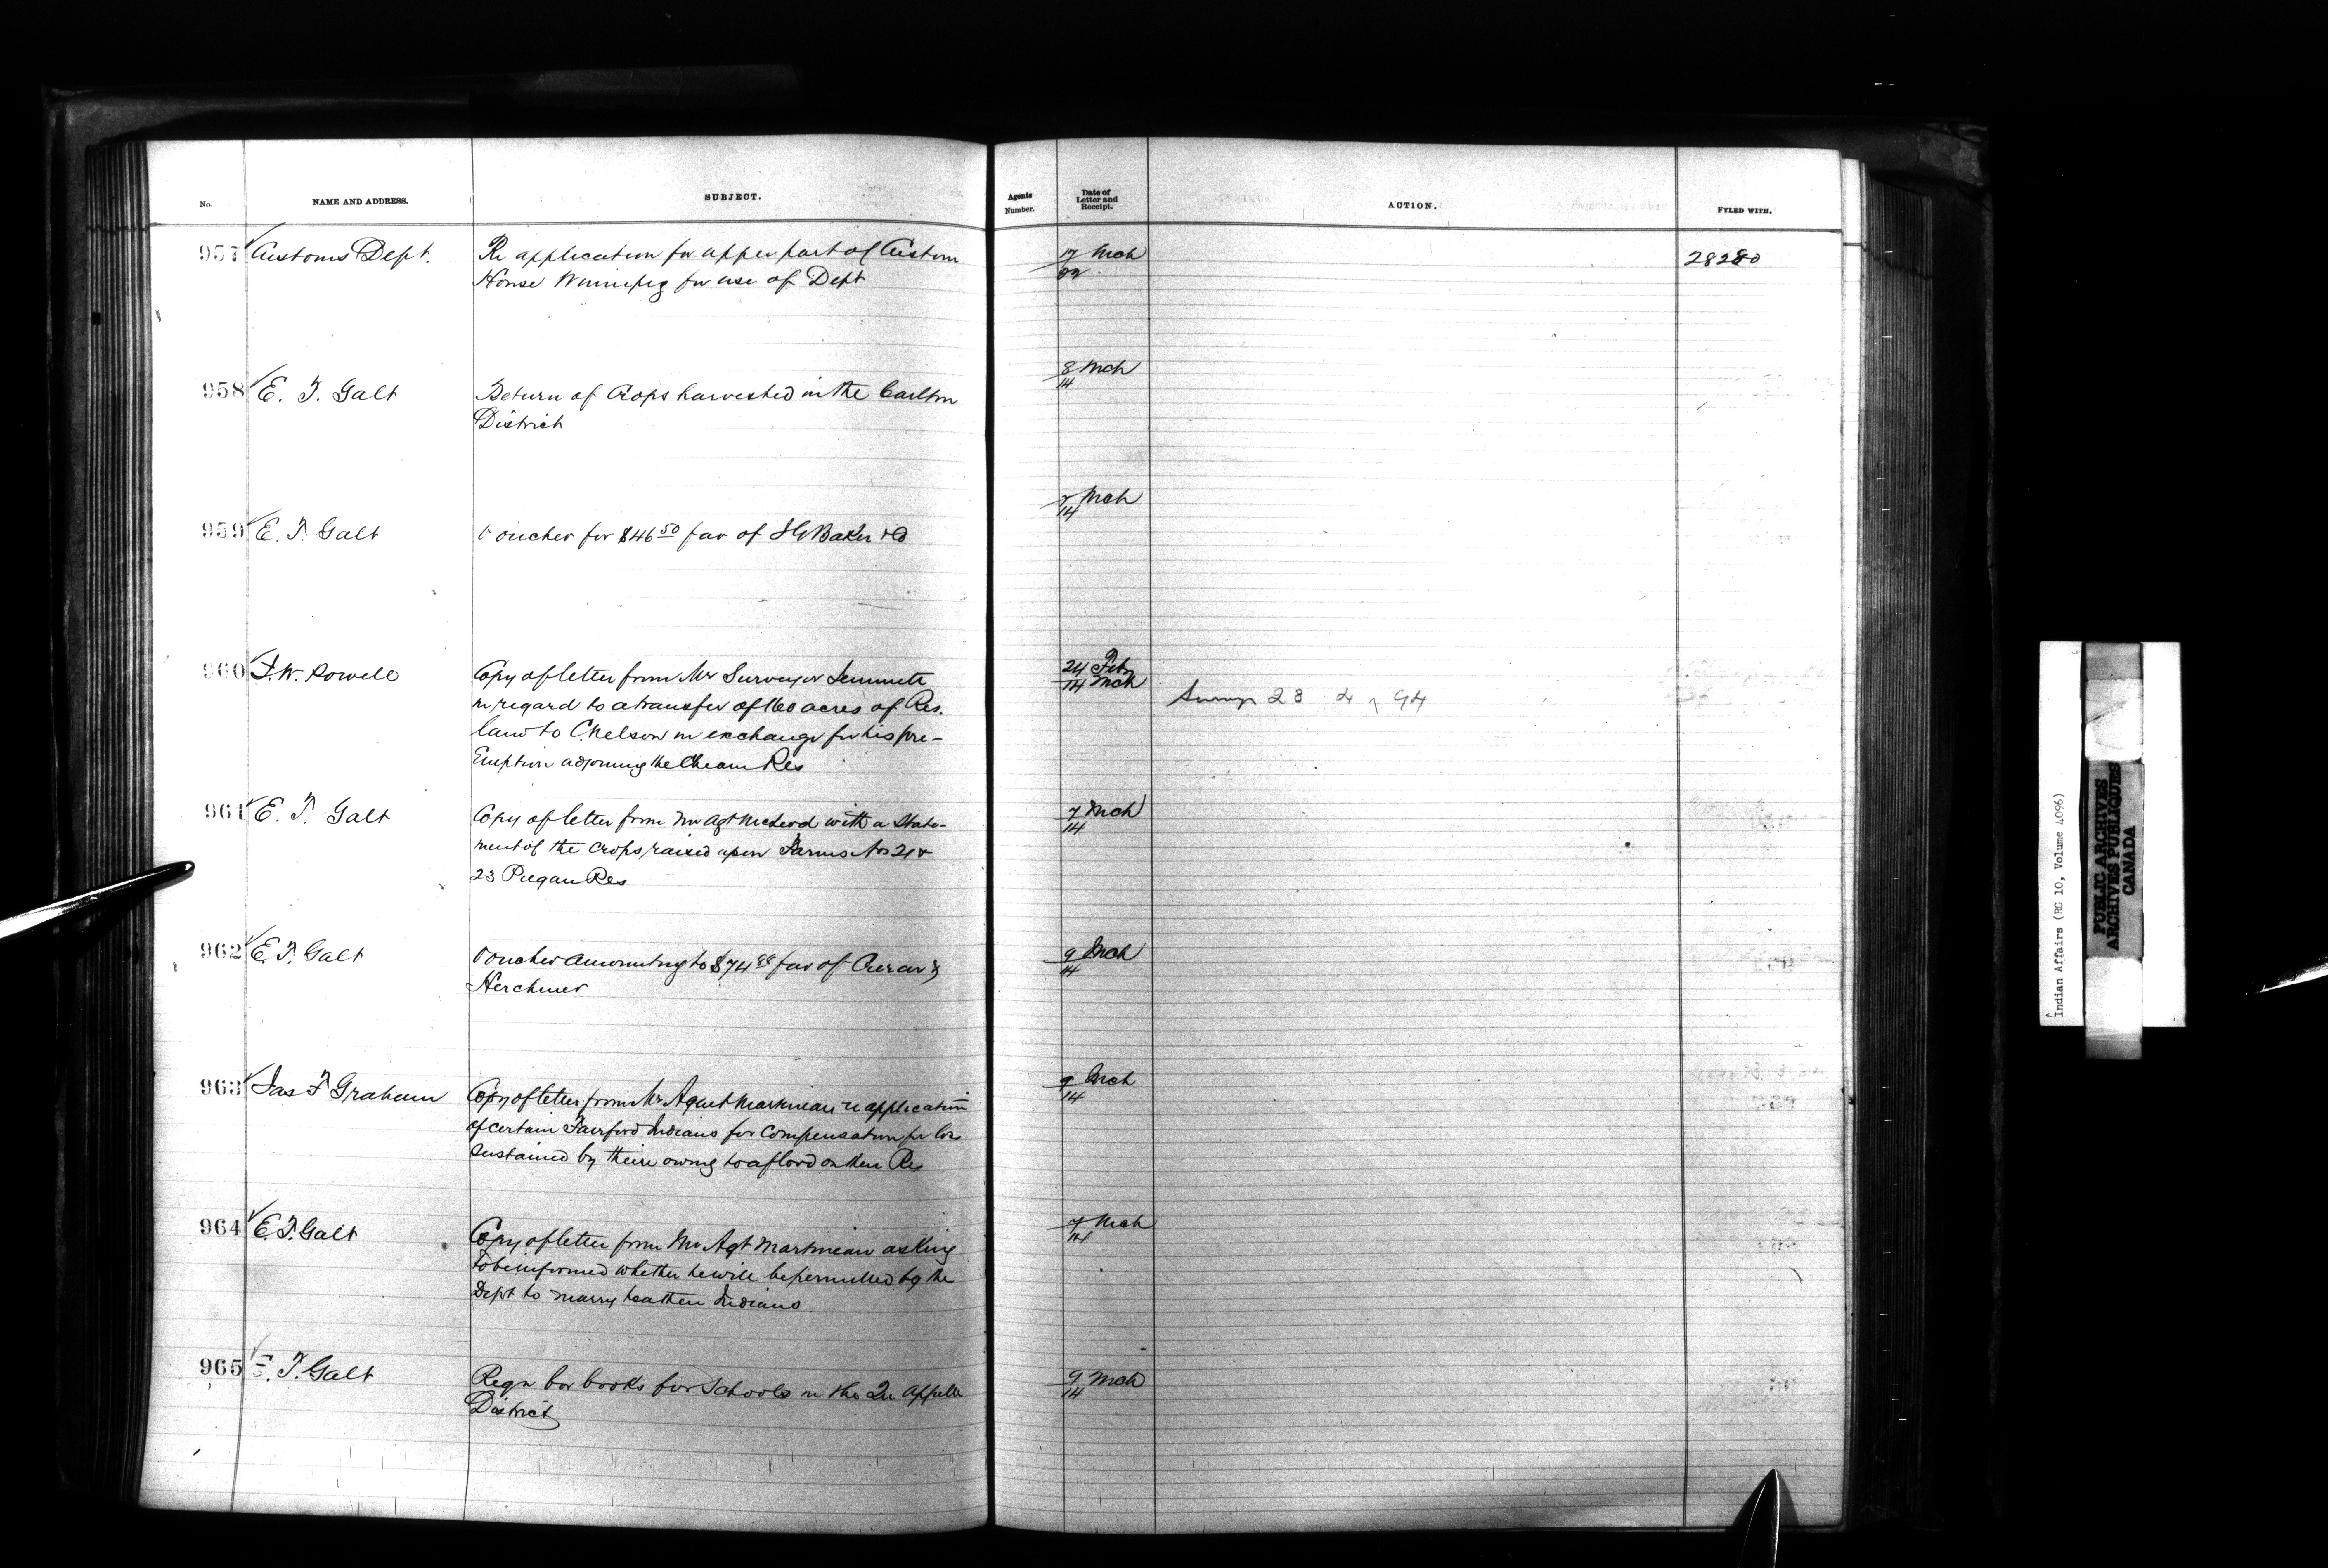 No. NAME AND ADDRESS. SUBJECT. Agents Number. Date of Letter and Receipt. ACTION. FYLED WITH.
957 Customs Dept. Re application for upper part of Custom 17 Mch 28280
House Winnipeg for use of Dept
958 E. T. Galt Return of Crops harvested in the Carlton 8 Mch
District 14
959 E. T. Galt Voucher for $46 50 fav of I G Baker & Co 7 Mch
14
960 I. W. Powell Copy of letter from Mr Surveyor Jemmett 24 Feby
in regard to a transfer of 160 acres of Res. 14 Mch
land to C. Nelson in exchange for his pre-
Emption adjoining the Cheam Res
961 E. T. Galt Copy of letter from Mr Agt McLeod with a State- 7 Mch
ment of the crops raised upon Farms Nos 21 & 14
23 Piegan Res
962 E. T. Galt Voucher amounting to $74 fav of 9 Mch
Herchmer 14
963 Jas F Graham Copy of letter from Mr Agent Martineau re application 9 Mch
of certain Fairford Indians for Compensation for loss 14
sustained by them owing to a flood on their Res
964 E. T. Galt Copy of letter from Mr Agt Martineau asking 7 Mch
to be informed whether he will be permitted by the 14
Dept to marry heathen Indians
965 E. T. Galt Reqn for books for Schools in the Qu Appelle 9 Mch
District 14
Indian Affairs (RG 10, Volume 4096)
PUBLIC ARCHIVES
ARCHIVES PUBLIQUES
CANADA